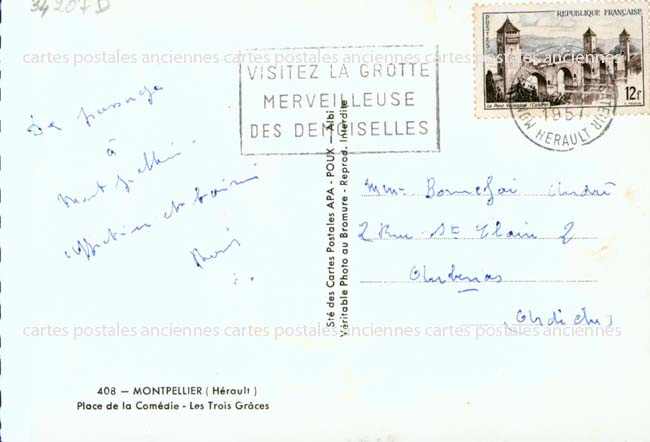 34207D
cartes postales anciennes cartes postales anciennes cartes postales anciennes
POSTES
REPUBLIQUE FRANÇAISE
Le Pont Valentré (Cahors)
12f
VISITEZ LA GROTTE
MERVEILLEUSE
DES DEMOISELLES
HERAULT
De passage
à
Montpellier
affection et baisers
Sté des Cartes Postales APA - POUX - Albi
Véritable Photo au Bromure - Reprod. Interdite
Mme Bonnefoi André
2 Rue St
Aubenas
Ardèche
cartes postales anciennes cartes postales anciennes cartes postales anciennes
408 — MONTPELLIER (Hérault)
Place de la Comédie - Les Trois Grâces